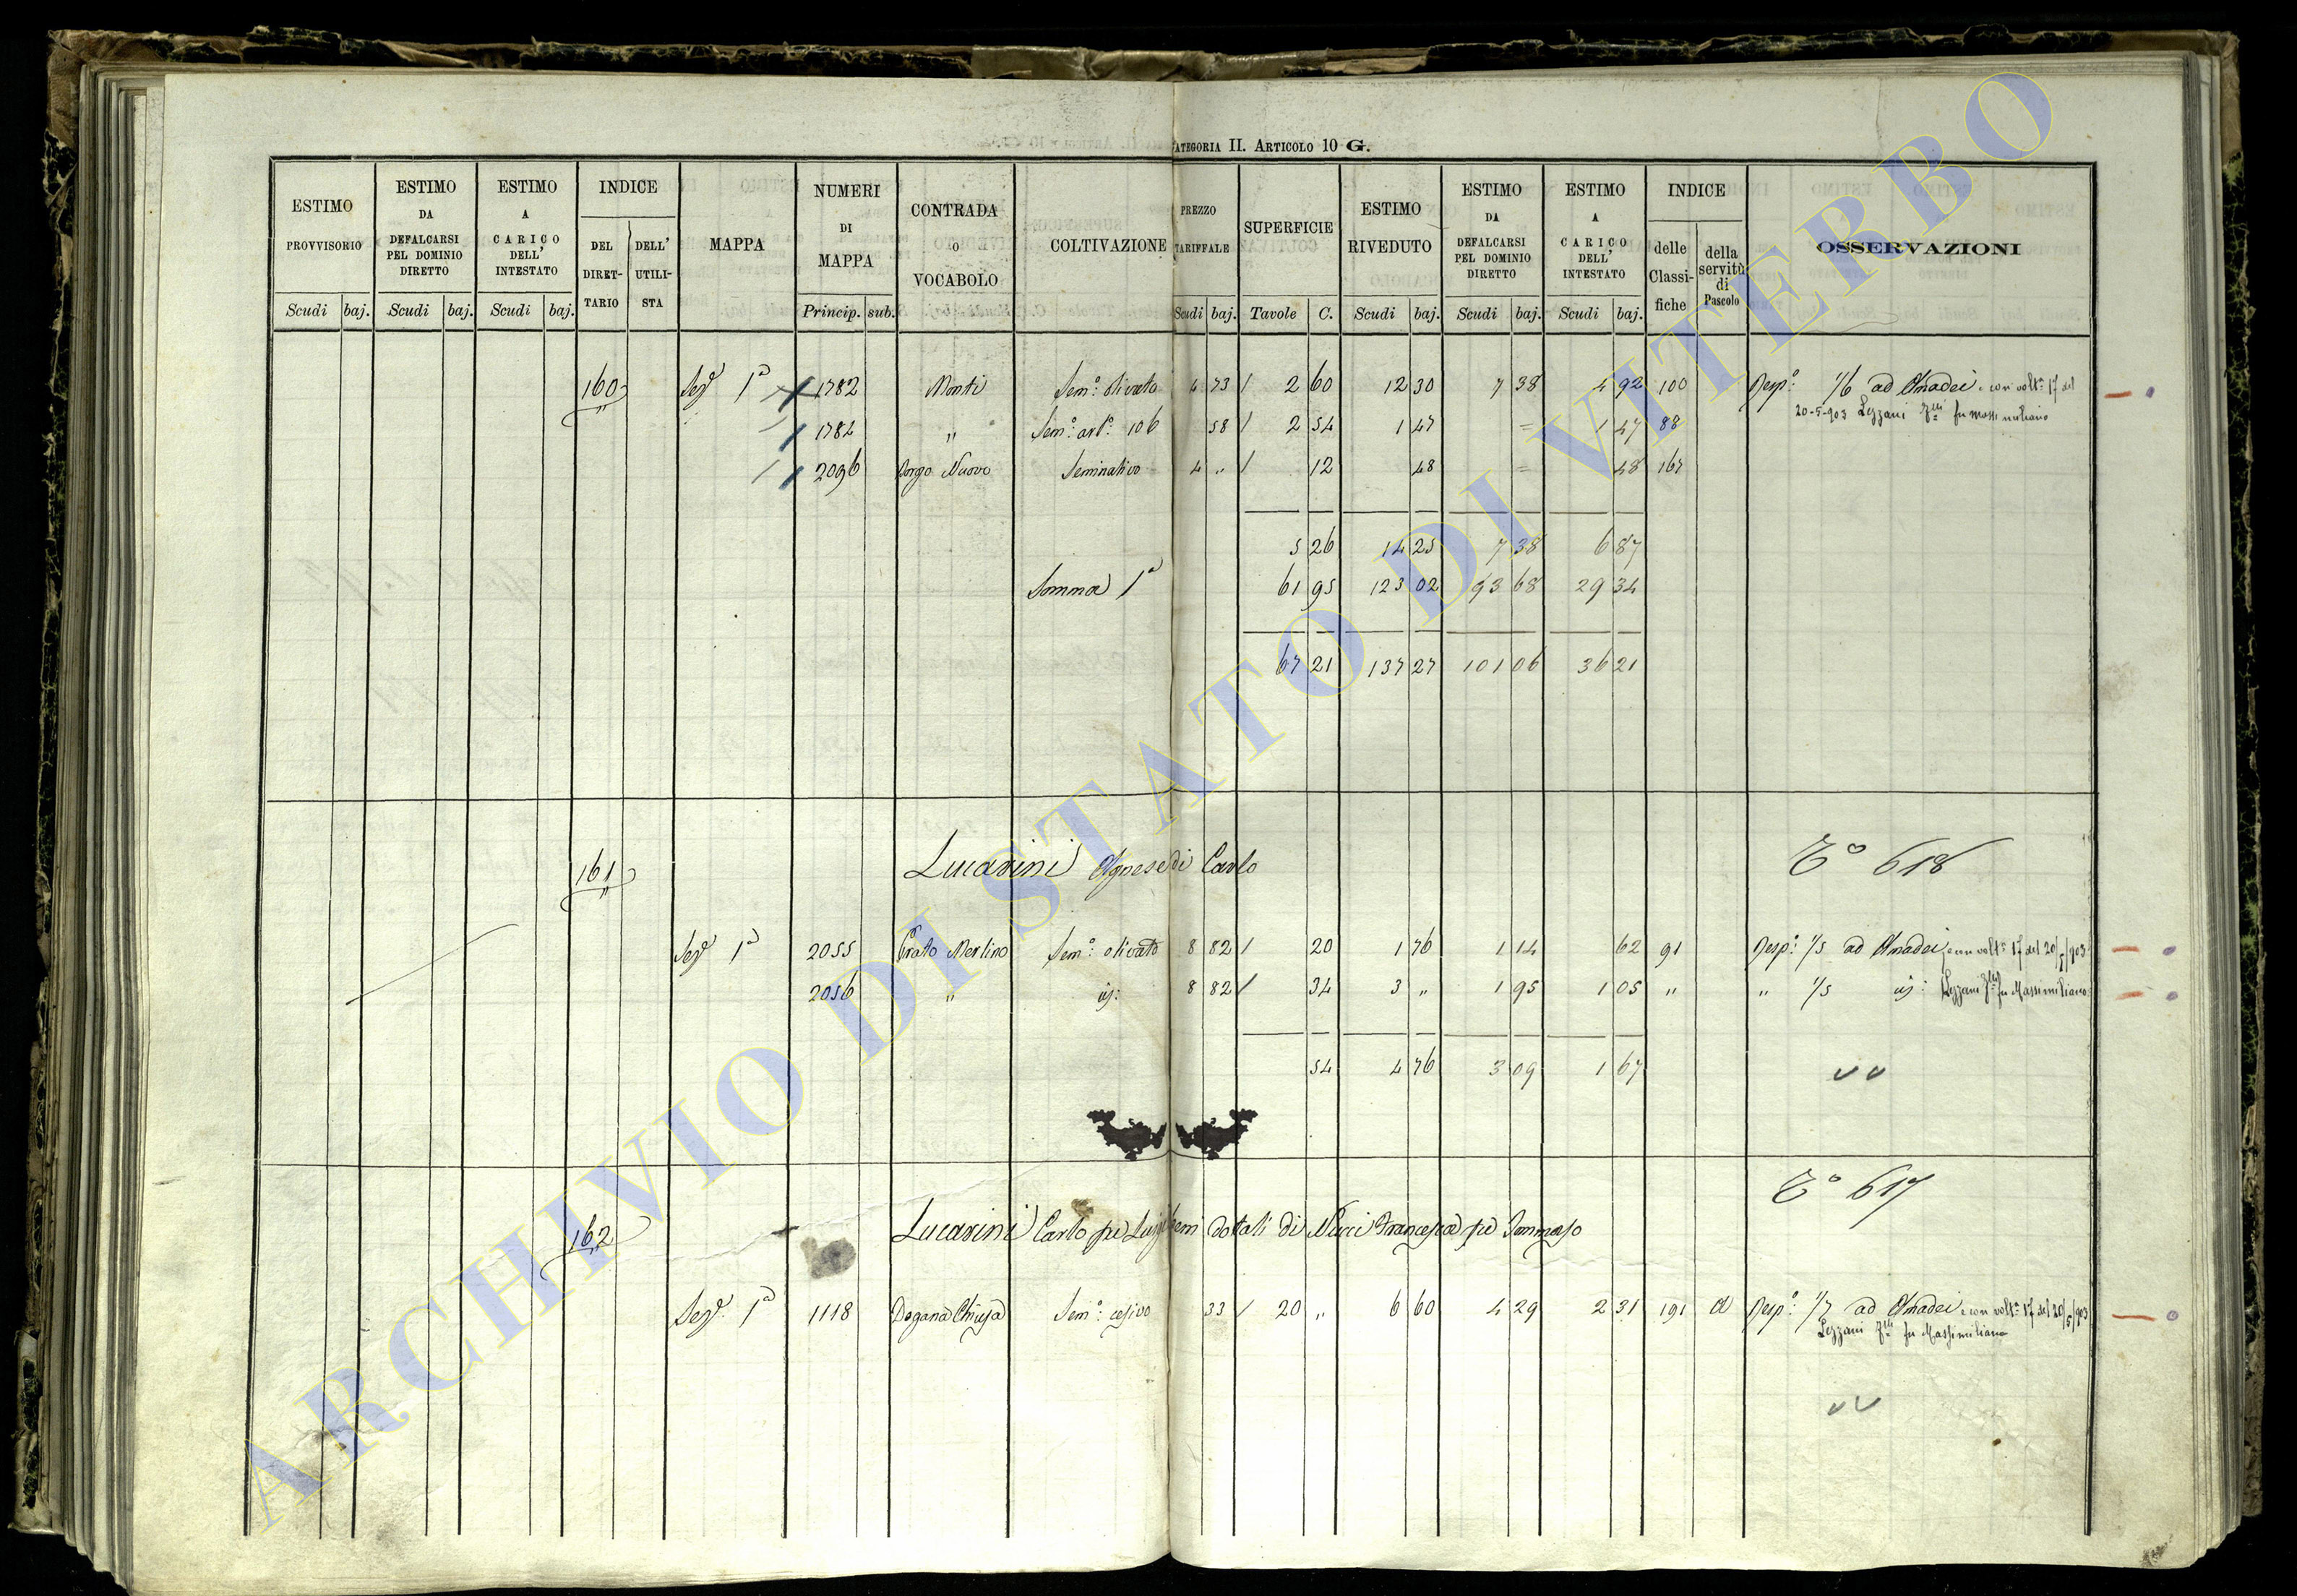 ATEGORIA II. ARTICOLO 10 G.
ESTIMO PROVVISORIO
ESTIMO DA DEFALCARSI PEL DOMINIO DIRETTO
ESTIMO A CARICO DELL' INTESTATO
INDICE
DEL DIRET-TARIO
DELL' UTILI-STA
MAPPA
NUMERI DI MAPPA
CONTRADA O VOCABOLO
COLTIVAZIONE
PREZZO TARIFFALE
SUPERFICIE
ESTIMO RIVEDUTO
ESTIMO DA DEFALCARSI PEL DOMINIO DIRETTO
ESTIMO A CARICO DELL' INTESTATO
INDICE
delle Classi-fiche
della servitù di Pascolo
OSSERVAZIONI
Scudi baj. Scudi baj. Scudi baj. Princip. sub. Scudi baj. Tavole C. Scudi baj. Scudi baj. Scudi baj.
160 Seze 1a 1782 Monti Semo: olivato 4 73 / 2 60 12 30 7 38 4 92 100 Respo: 1/6 ad Amadei e con volta 17 del
20-5-903 Lezzani fu Massimiliano
1782 " Semo: arto: 106 58 / 2 54 1 47 = 1 47 88
2096 Borgo Nuovo Seminativo 4 " / 12 48 = 48 167
5 26 14 25 7 38 6 87
Somma 1a 61 95 123 02 93 68 29 34
67 21 137 27 101 06 36 21
161 Lucarini Agnese di Carlo To 618
Sezе 1a 2055 Prato Merlino Semo: olivato 8 82 / 20 1 76 1 14 62 91 Respo: 1/5 ad Amadei e con volta 17 del 20/5/903
2056 " id: 8 82 / 34 3 " 1 95 1 05 " " 1/5 id: Lezzani fu Massimiliano
54 4 76 3 09 1 67
To 617
162 Lucarini Carlo fu Luigi beni dotali di Nucci Francesca fu Tommaso
Seze 1a 1118 Dogana Chiusa Semo: cesivo 33 / 20 " 6 60 4 29 2 31 191 A Respo: 1/7 ad Amadei e con volta 17 del 20/5/903
Lezzani fu Massimiliano
ARCHIVIO DI STATO DI VITERBO